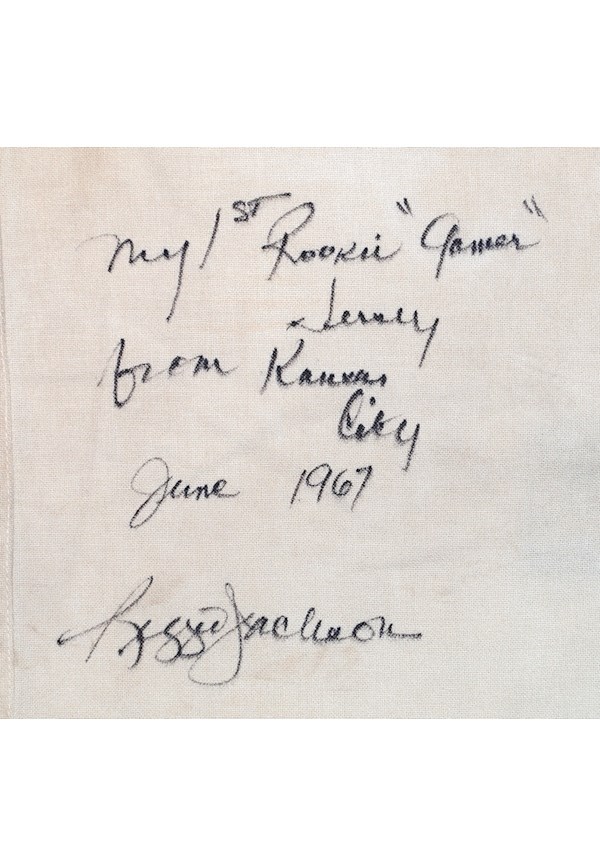 My 1ST Rookie "Gamer"
Jersey
from Kansas
City
June 1967
Reggie Jackson